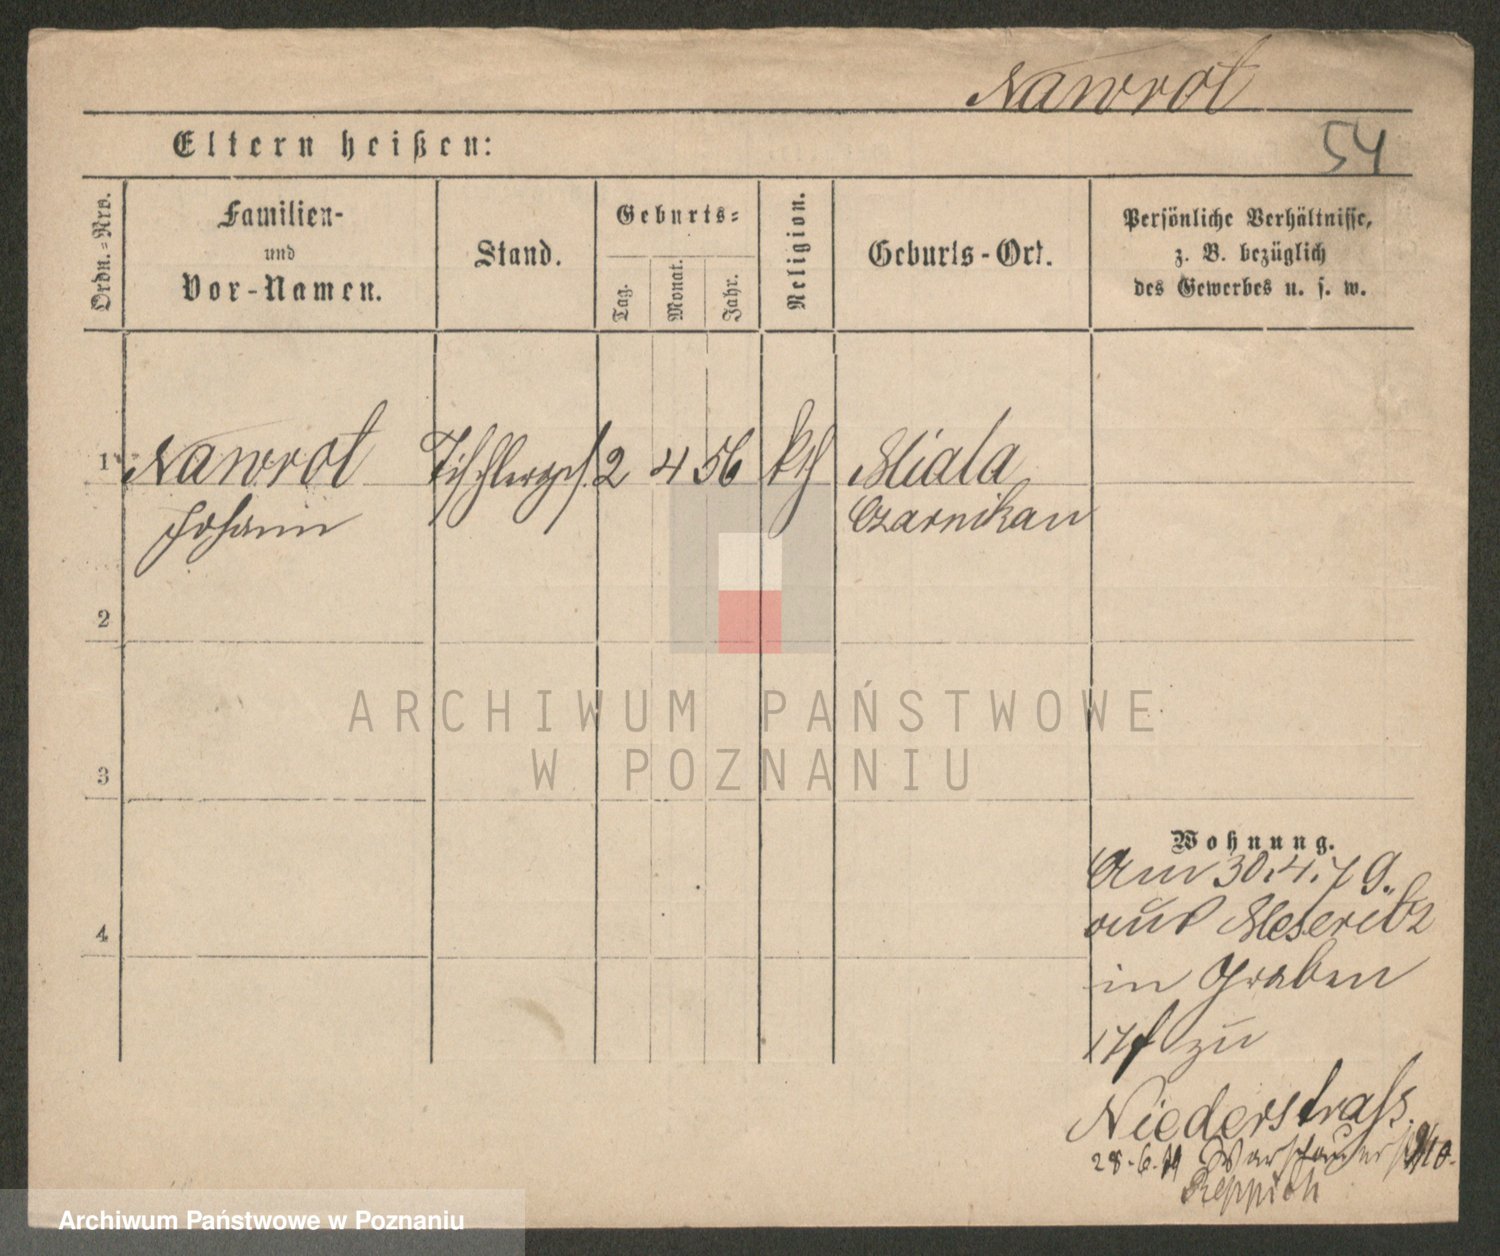 Nawrot
54
Eltern heißen:
Ordn.=Nrs.
Familien-
und
Vor-Namen.
Stand.
Geburts=
Tag.
Monat.
Jahr.
Religion.
Geburts-Ort.
Persönliche Verhältnisse,
z. B. bezüglich
des Gewerbes u. s. w.
1 Nawrot Tischlerges. 2 4 56 kth Miala
Johann Czarnikau
2
3
4
ARCHIWUM PAŃSTWOWE
W POZNANIU
Wohnung.
Am 30.4.79.
aus Meseritz
in Graben
17 zu
Niederstrass.
28.6.79 Warschauerst
Reppich
Archiwum Państwowe w Poznaniu